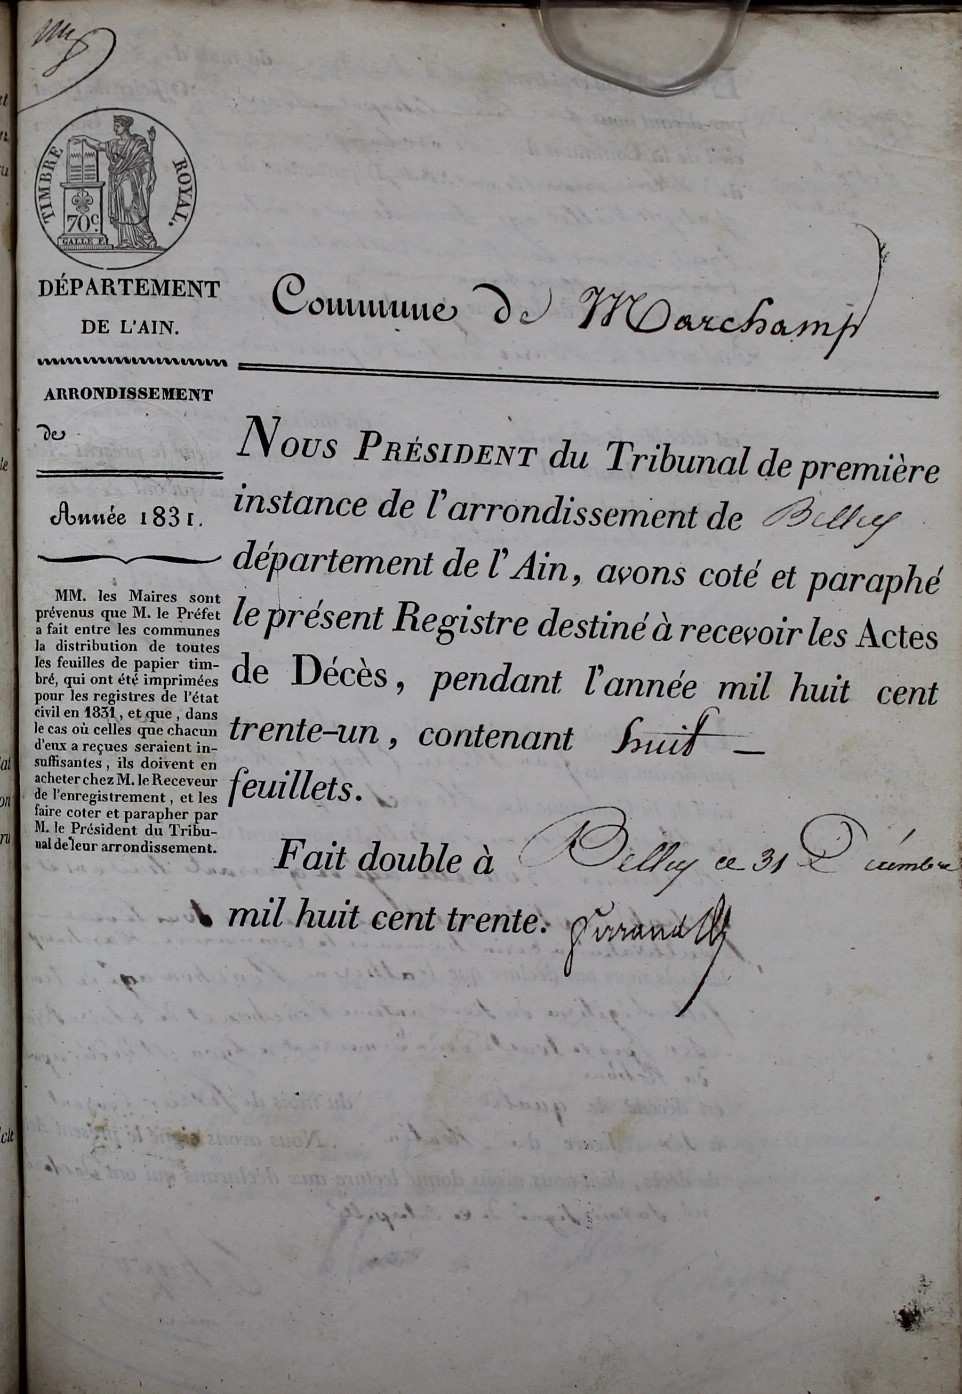 TIMBRE ROYAL.
70 c.
GALLE F.
DÉPARTEMENT
DE L'AIN.
ARRONDISSEMENT
de
Année 1831.
MM. les Maires sont
prévenus que M. le Préfet
a fait entre les communes
la distribution de toutes
les feuilles de papier tim-
bré, qui ont été imprimées
pour les registres de l'état
civil en 1831, et que, dans
le cas où celles que chacun
d'eux a reçues seraient in-
suffisantes, ils doivent en
acheter chez M. le Receveur
de l'enregistrement, et les
faire coter et parapher par
M. le Président du Tribu-
nal de leur arrondissement.
Commune de Marchamp
NOUS PRÉSIDENT du Tribunal de première
instance de l'arrondissement de Belley
département de l'Ain, avons coté et paraphé
le présent Registre destiné à recevoir les Actes
de Décès, pendant l'année mil huit cent
trente-un, contenant huit —
feuillets.
Fait double à Belley ce 31 Décembre
mil huit cent trente.